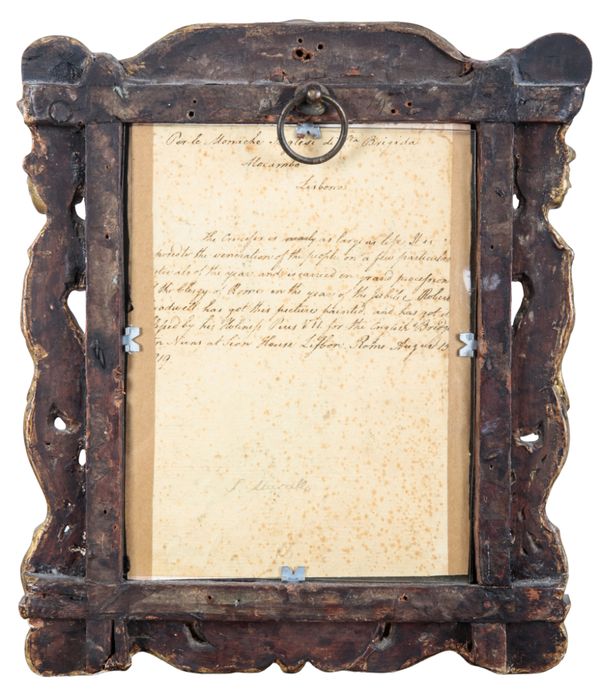 Per le Monache Inglesi di Sta Brigida
Mocambo
Lisbona
The Crucifix is nearly as large as life. It is
to the veneration of the people on a few particular
of the year and is carried in grand procession
the Clergy of Rome in the year of the Jubilee. Robert
has got this picture painted, and has got it
by his Holiness Pius VII. for the English
Nuns at Sion House Lisbon. Rome August 13